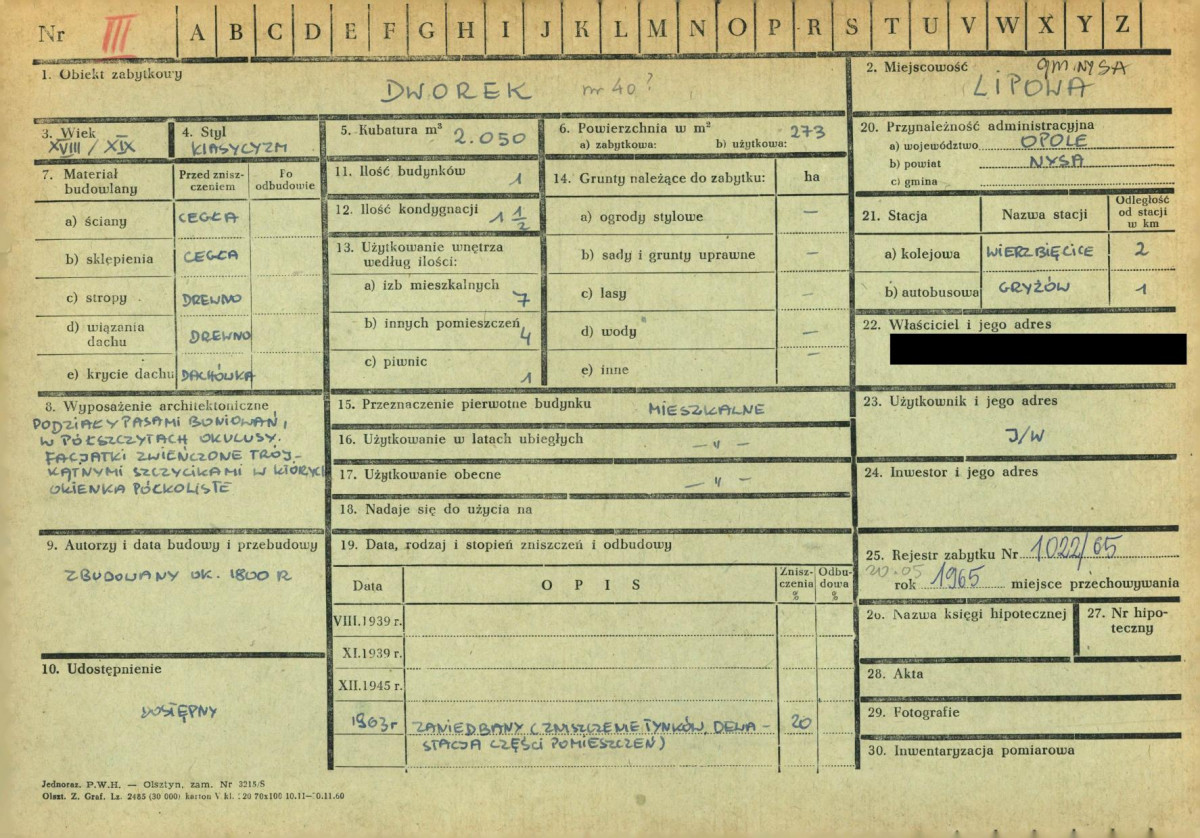 Nr III A B C D E F G H I J K L M N O P R S T U V W X Y Z
1. Obiekt zabytkowy
DWOREK nr 40?
2. Miejscowość gm. NYSA
LIPOWA
3. Wiek
XVIII / XIX
4. Styl
KLASYCYZM
5. Kubatura m³ 2.050
6. Powierzchnia w m² 273
a) zabytkowa: b) użytkowa:
7. Materiał budowlany
Przed zniszczeniem
Po odbudowie
a) ściany CEGŁA
b) sklępienia CEGŁA
c) stropy DREWNO
d) wiązania dachu DREWNO
e) krycie dachu DACHÓWKA
8. Wyposażenie architektoniczne
PODZIAŁY PASAMI BONIOWAŃ,
W PÓŁSZCZYTACH OKULUSY.
FACJATKI ZWIEŃCZONE TRÓJ-
KĄTNYMI SZCZYCIKAMI W KTÓRYCH
OKIENKA PÓŁKOLISTE
9. Autorzy i data budowy i przebudowy
ZBUDOWANY OK. 1800 R
10. Udostępnienie
DOSTĘPNY
11. Ilość budynków 1
12. Ilość kondygnacji 1 1/2
13. Użytkowanie wnętrza
według ilości:
a) izb mieszkalnych 7
b) innych pomieszczeń 4
c) piwnic 1
14. Grunty należące do zabytku: ha
a) ogrody stylowe —
b) sady i grunty uprawne —
c) lasy —
d) wody —
e) inne —
15. Przeznaczenie pierwotne budynku MIESZKALNE
16. Użytkowanie w latach ubiegłych — „ —
17. Użytkowanie obecne — „ —
18. Nadaje się do użycia na
19. Data, rodzaj i stopień zniszczeń i odbudowy
Data
OPIS
Zniszczenia %
Odbudowa %
VIII.1939 r.
XI.1939 r.
XII.1945 r.
1963 r ZANIEDBANY (ZNISZCZENIE TYNKÓW, DEWA- 20
STACJA CZĘŚCI POMIESZCZEŃ)
20. Przynależność administracyjna
a) województwo OPOLE
b) powiat NYSA
c) gmina
21. Stacja
Nazwa stacji
Odległość od stacji w km
a) kolejowa WIERZBIĘCICE 2
b) autobusowa GRYŻÓW 1
22. Właściciel i jego adres
23. Użytkownik i jego adres
J/W
24. Inwestor i jego adres
25. Rejestr zabytku Nr 1022/65
20.05 rok 1965 miejsce przechowywania
26. Nazwa księgi hipotecznej
27. Nr hipoteczny
28. Akta
29. Fotografie
30. Inwentaryzacja pomiarowa
Jednoraz. P.W.H. — Olsztyn, zam. Nr 3215/S
Olszt. Z. Graf. Lz. 2485 (30 000) karton V kl.